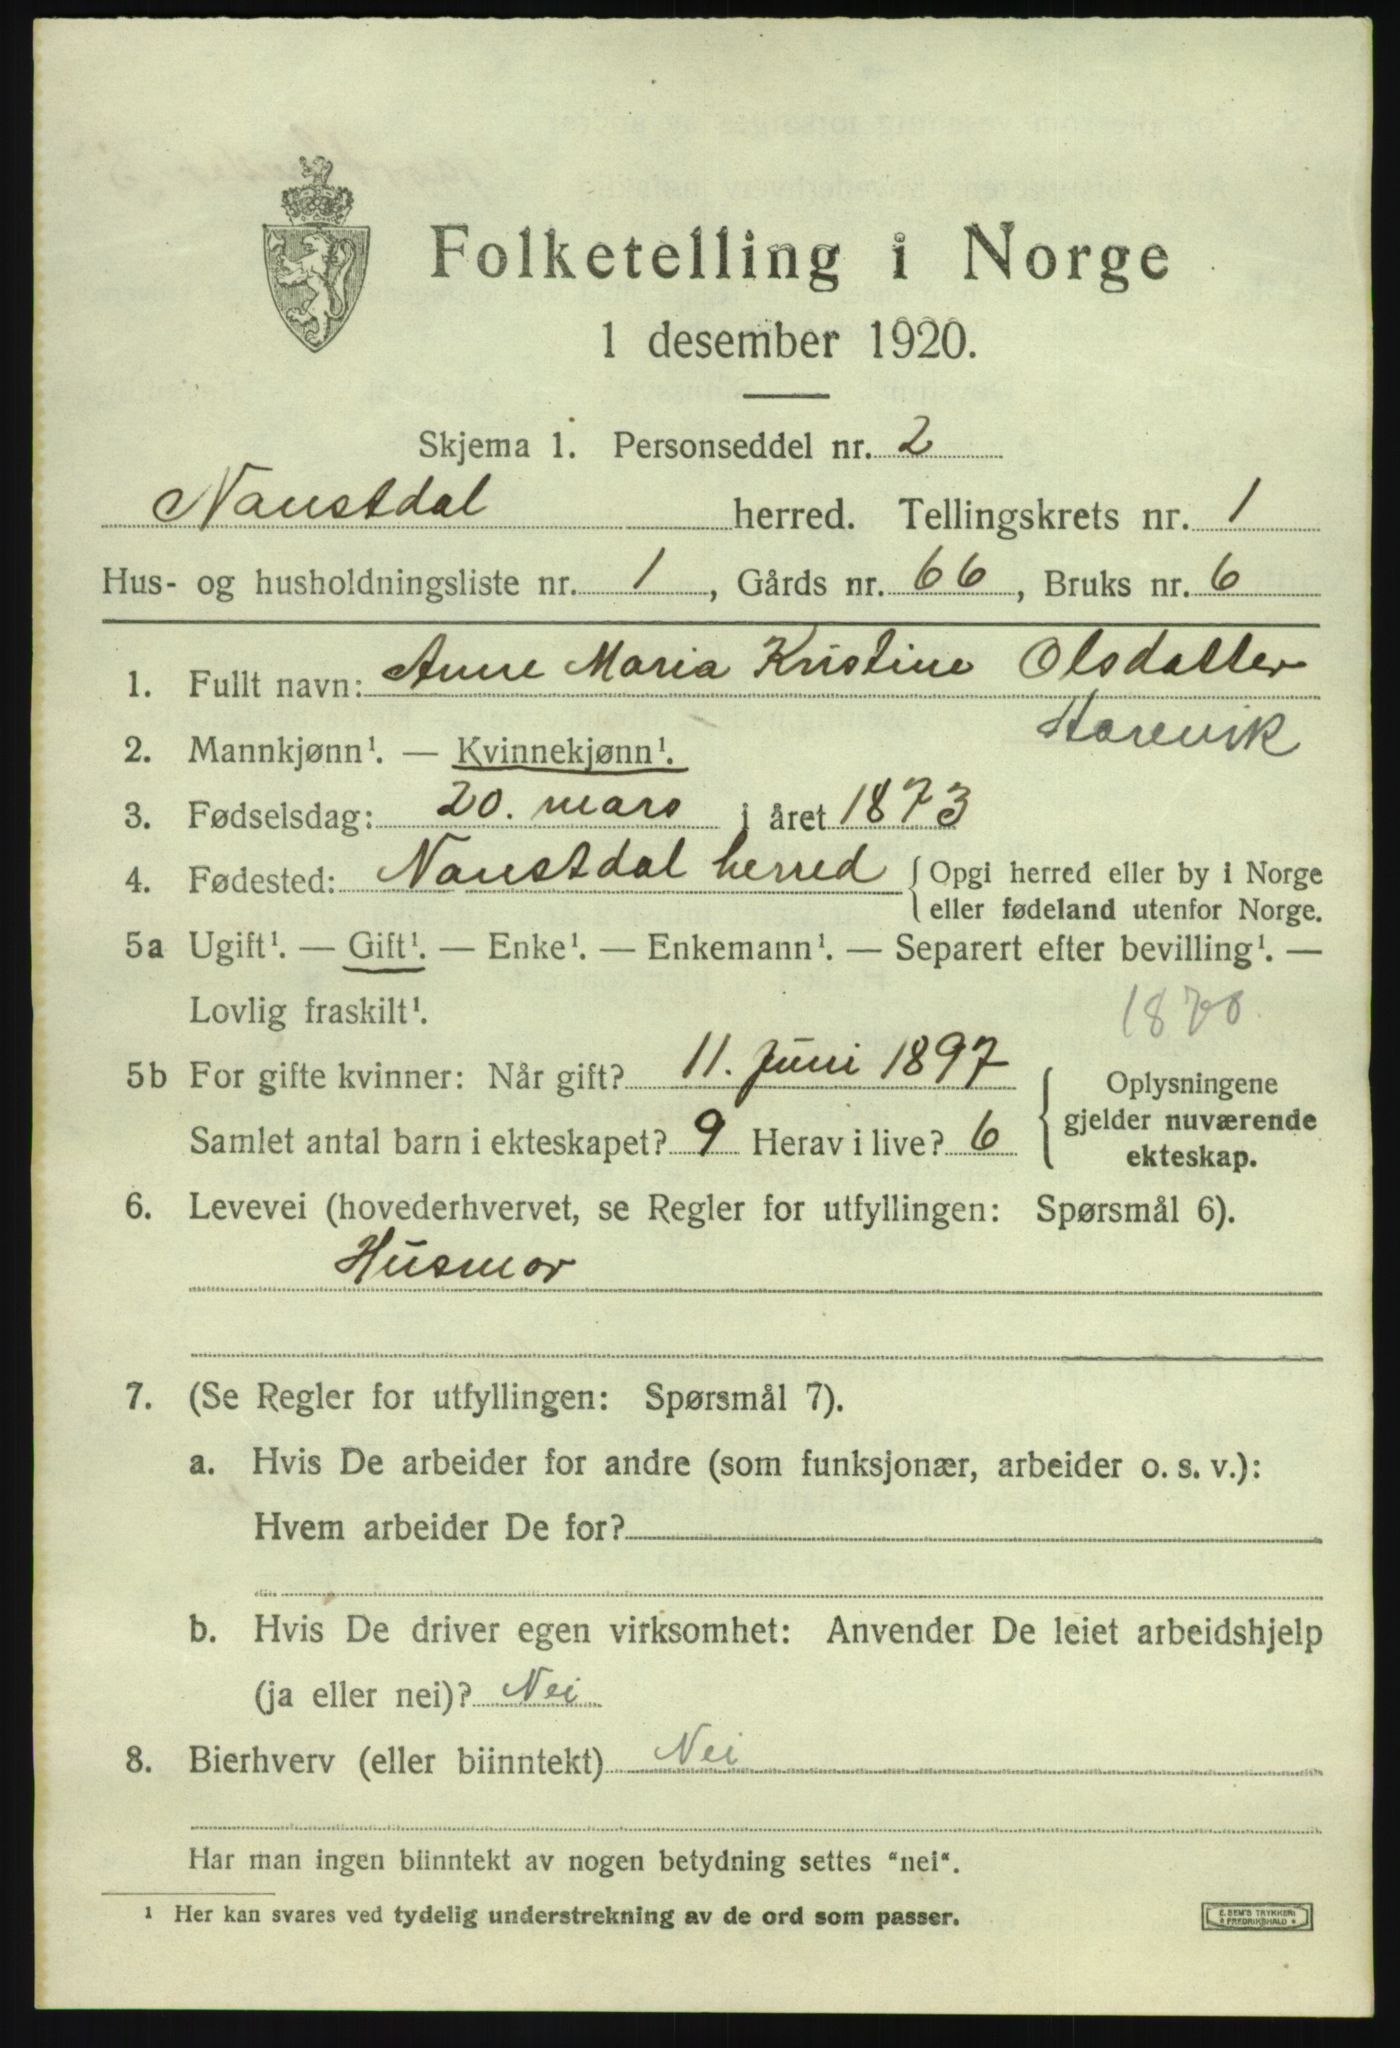 Folketelling i Norge
1 desember 1920.
Skjema 1. Personseddel nr. 2
Naustdal herred. Tellingskrets nr. 1
Hus- og husholdningsliste nr. 1, Gårds nr. 66, Bruks nr. 6
1. Fullt navn: Anne Maria Kristine Olsdatter
Horsvik
2. Mannkjønn¹. — Kvinnekjønn¹.
3. Fødselsdag: 20. mars i året 1873
4. Fødested: Naustdal herred { Opgi herred eller by i Norge
eller fødeland utenfor Norge.
5a Ugift¹. — Gift¹. — Enke¹. — Enkemann¹. — Separert efter bevilling¹. —
Lovlig fraskilt¹.
5b For gifte kvinner: Når gift? 11. Juni 1897 { Oplysningene
Samlet antal barn i ekteskapet? 9 Herav i live? 6 gjelder nuværende
ekteskap.
6. Levevei (hovederhvervet, se Regler for utfyllingen: Spørsmål 6).
Husmor
7. (Se Regler for utfyllingen: Spørsmål 7).
a. Hvis De arbeider for andre (som funksjonær, arbeider o. s. v.):
Hvem arbeider De for?
b. Hvis De driver egen virksomhet: Anvender De leiet arbeidshjelp
(ja eller nei)? Nei
8. Bierhverv (eller biinntekt) Nei
Har man ingen biinntekt av nogen betydning settes "nei".
¹ Her kan svares ved tydelig understrekning av de ord som passer.
E. SEM'S TRYKKERI
FREDRIKSHALD